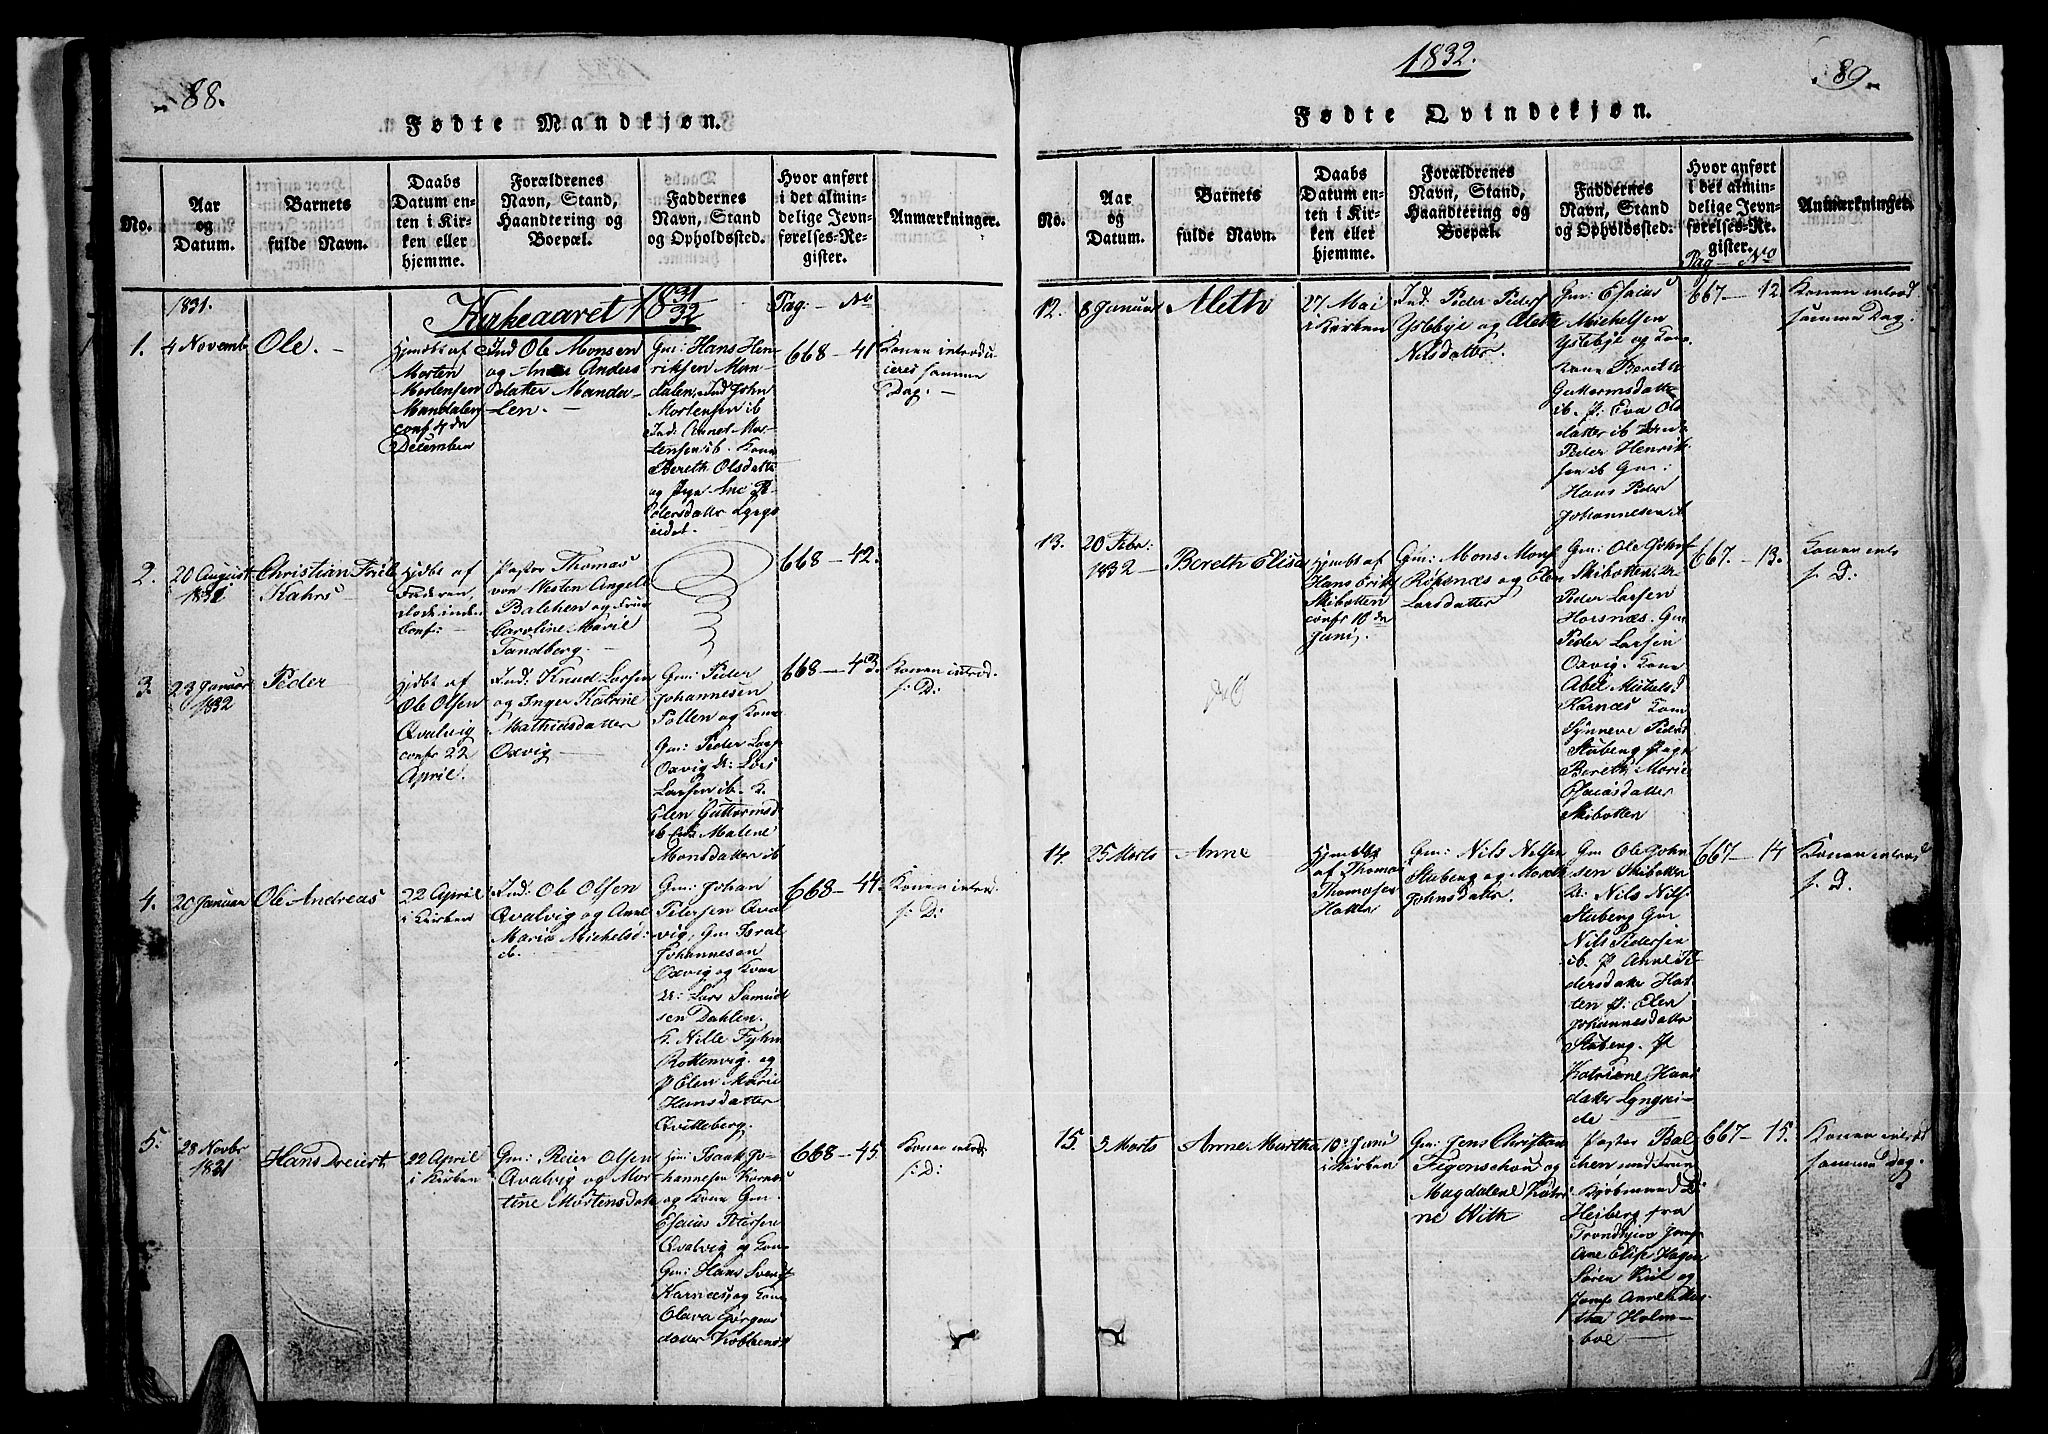 88.
Fødte Mandkjøn.
No.
Aar
og
Datum.
Barnets
fulde Navn.
Daabs
Datum en-
ten i Kir-
ken eller
hjemme.
Forældrenes
Navn, Stand,
Haandtering og
Boepæl.
Faddernes
Navn, Stand
og Opholdssted.
Hvor anført
i det almin-
delige Jevn-
førelses-Re-
gister.
Anmærkninger.
1831.
Kirkeaaret 1831/32
Pag: — No
1.
4 Novemb
Ole. —
Hjmdbt af
Morten
Mortensen
Mandalen
conf 4de
December
Ind Ole Monsen
og Anders
datter Manda-
len. —
Gm: Hans Hen-
riksen Man-
dalen, Ind John
Mortensen ib
Ind: Mor-
tensen ib. Kone
Bereth Olsdatter
og Pige Ane P-
edersdatter Lyngs
eidet. —
668 — 41
Konen introdu
ceres samme
Dag. —
2.
20 August
1831
Christian Friele
Kahrs —
Hjdbt af
Faderen,
Conf: —
Pastor Thomas
von Westen Angell
Balchen og Frue
Caroline Marie
Tandberg. —
668 — 42.
3.
23 Januar
1832
Peder
Hjdbt af
Ole Olsen
Qvalvig
confr 22
April.
Ind: Knud Larsen
og Inger Katrine
Mathiasdatter
Oxvig —
Gm: Peder
Johannesen
Pollen og Kone
Gm: Peder Lars
Oxvig U: Lars
Larsen ib. K.
Elen Guttormsd
Malene
Monsdatter ib
668 — 43.
Konen introd.
s: D:
4.
20 Januar
Ole Andreas
22 April
i Kirken
Ind: Ole Olsen
Qvalvig og Ane
Maria Michelsd:
ib.
Gm: Johan
Petersen Qval
vig, Gm Isral
Johannesen
Oxvig og Kone
U: Lars Samuel
sen Dahlen.
K. Nille Fyhn
Rottenvig. og
P Elen Marie
Hansdatter
Qvitteberg.
668 — 44.
Konen introd.
s: D:
5.
28 Novbr
1831
Hans Dreiert
22 April
i Kirken
Gm: Reier Olsen
Qvalvig og Mor
tine Mortensdatt
Gm: Isaak Jo-
hannesen Karnæs
og Kone Gm.
Esaias Petersen
Qvalvig og Kone
Gm: Hans
Karnæs, og Kone
Olava Jørgens
datter
668 — 45
Konen introd.
s: D:
1832.
89.
Fødte Qvindekjøn.
No.
Aar
og
Datum.
Barnets
fulde Navn.
Daabs
Datum en-
ten i Kir-
ken eller
hjemme.
Forældrenes
Navn, Stand,
Haandtering og
Boepæl.
Faddernes
Navn, Stand
og Opholdssted.
Hvor anført
i det almin-
delige Jevn-
førelses-Re-
gister.
Pag — No
Anmærkninger.
12.
8 Januar
Aleth
27. Mai
i Kirken
Ind. Peder Peders
Ystebye og Aleth
Nilsdatter.
Gm: Esaias
Michelsen
Ystebye og
Kone Bereth
Guttormsdatter
ib. P: Eva Ols
datter ib
Peder Henrik
sen ib Gm:
Hans Peder
Johannesen ib
667 — 12
Konen introd
samme Dag.
13.
20 Febr:
1832
Bereth Elisa
Hjmdbt af
Hans
Skibotten
confr 10de
Juni.
Gm: Mons Mons
og Elen
Larsdatter
Gm: Ole Johns
Skibotten, U.
Peder Larsen
Horsnæs. Gm
Peder Larsen
Oxvig. Kone
Abel Michels
Karnæs Kone
Synneve Peders
Stuberg Pige
Bereth Marie
Esaiasdatter
Skibotten
667 — 13.
Konen intr
s. D:
14.
25 Marts
Anne
Hjmdbt
af Thomas
Thomasen
Gm: Nils Nilsen
Stuberg og Mareth
Johnsdatter.
Gm Ole John
sen Skibotten
U: Nils Nils
Stuberg Gm
Nils Pedersen
ib. P Anne Pe
dersdatter
P: Elen
Johannesdatter
Stuberg. P
Katrine Hans
datter Lyngsei-
de —
667 — 14
Konen introd
s. D.
15.
3 Marts
Anne Martha
10de Juni
i Kirken
Gm: Jens Christian
og
Magdalene Katri
ne With
Pastor Bal
chen med Frue
Kjøbmand
Heiberg fra
Trondhjem Jomf
Ane Elise Hagen
Søren Kiil og
Jomf Anne Mar-
tha Holm-
boe —
667 — 15.
Konen introd
samme Dag.